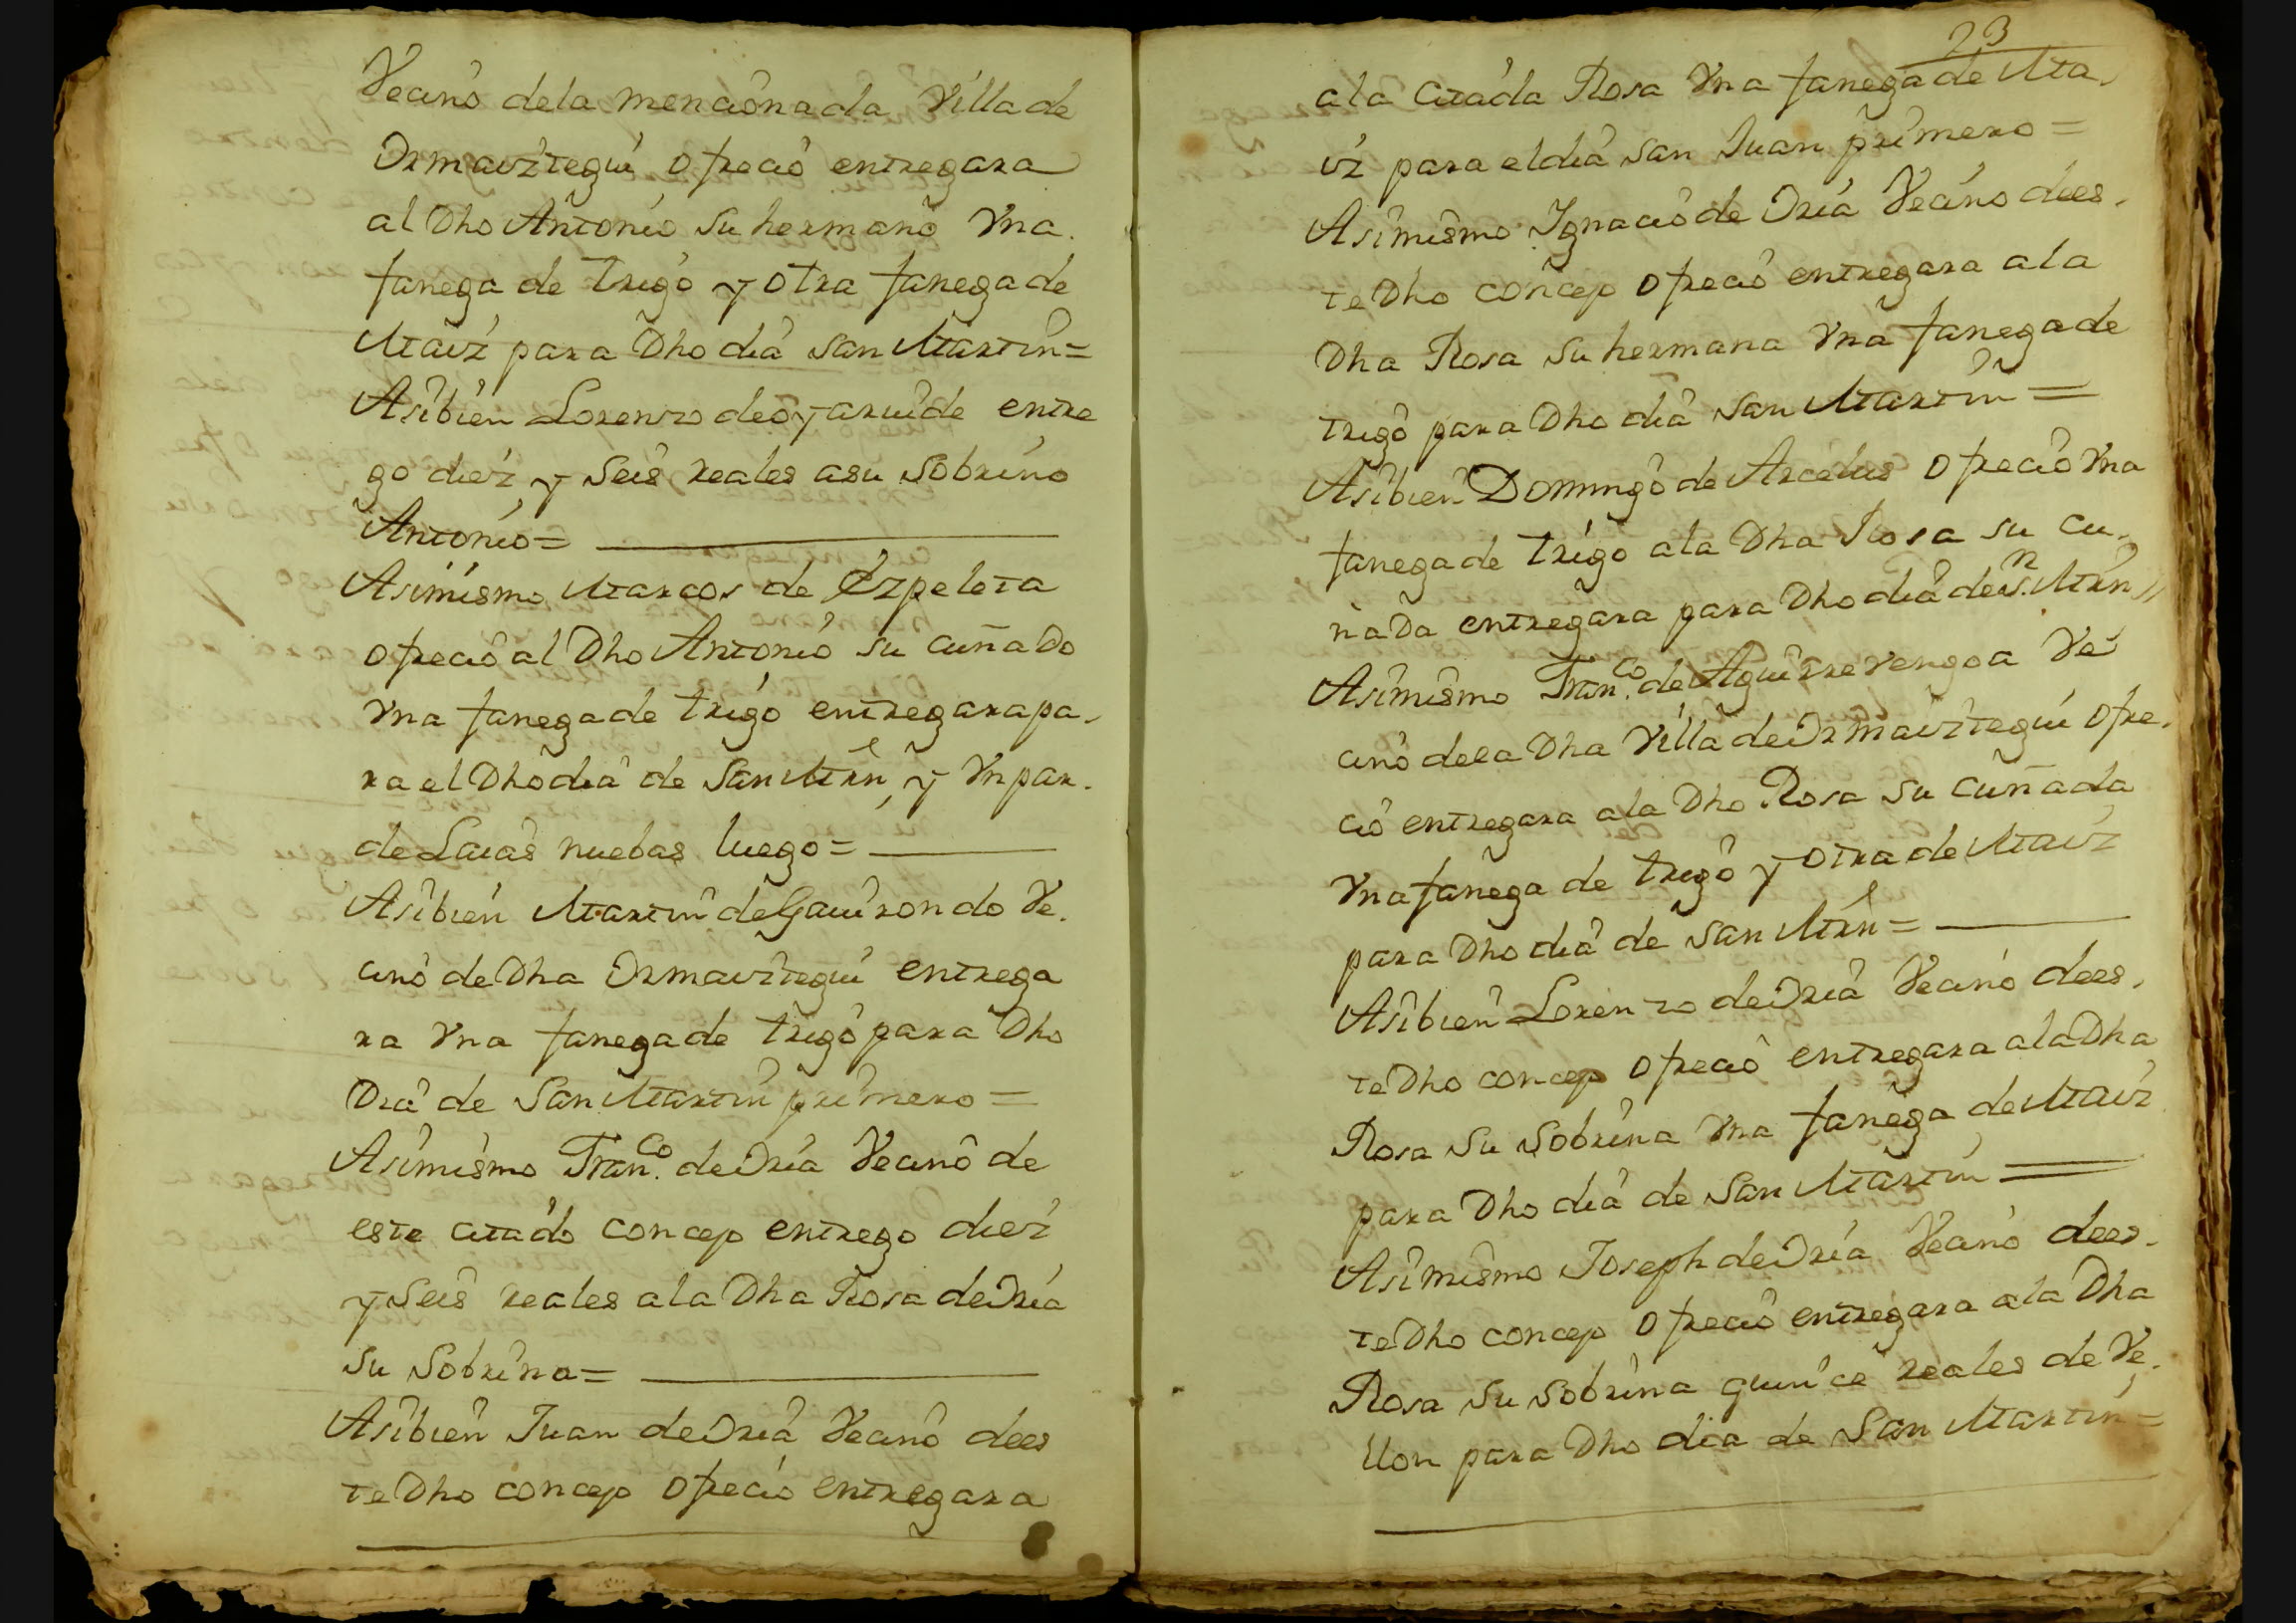 Vecino dela mencionada Villa de
Ormaiztegui ofrecio entregara
al Dho Antonio su hermano Vna
fanega de trigo y otra fanega de
Maiz para Dho dia san Martin=
Asibien Lorenzo de oyaruide entre
go diez y seis reales asu sobrino
Antonio=
Asimismo Marcos de Ezpeleta
ofrecio al Dho Antonio su cuñaDo
Vna fanega de trigo entregara pa-
ra el Dho dia de San Mrn, y Vn par.
de Laias nuebas luego=
Asibien Martin de Gauirondo Ve.
cino de Dha Ormaiztegui entrega
ra Vna fanega de trigo para Dho
Dia de San Martin primero=
Asimismo Franco. de Oria Vecino de
este citado concejo entrego diez
y seis reales ala Dha Rosa de Oria
su sobrina=
Asibien Juan de Oria Vecino dees
te Dho concejo ofrecio entregara
23
ala citada Rosa Vna fanega de Ma-
iz para el dia san Juan primero=
Asimismo Ignacio de Oria Vecino dees-
te Dho concejo ofrecio entregara ala
Dha Rosa su hermana Vna fanega de
trigo para Dho dia san Martin=
Asibien Domingo de Arcelus ofrecio Vna
fanega de trigo ala Dha Rosa su cu-
ñaDa entregara para Dho dia de Sn. Mrn//
Asimismo Franco. de Aguirrevengoa Ve
cino dela Dha Villa de Ormaiztegui ofre-
cio entregara ala Dho Rosa su cuñada
Vna fanega de trigo y otra de Maiz
para Dho dia de san Mrn=
Asibien Lorenzo de Oria Vecino dees-
te Dho concejo ofrecio entregara ala Dha
Rosa su sobrina Vna fanega de Maiz
para Dho dia de San Martin=
Asimismo Joseph de Oria Vecino dees-
te Dho concejo ofrecio entregara ala Dha
Rosa su sobrina quince reales de Ve-
llon para Dho dia de San Martin=